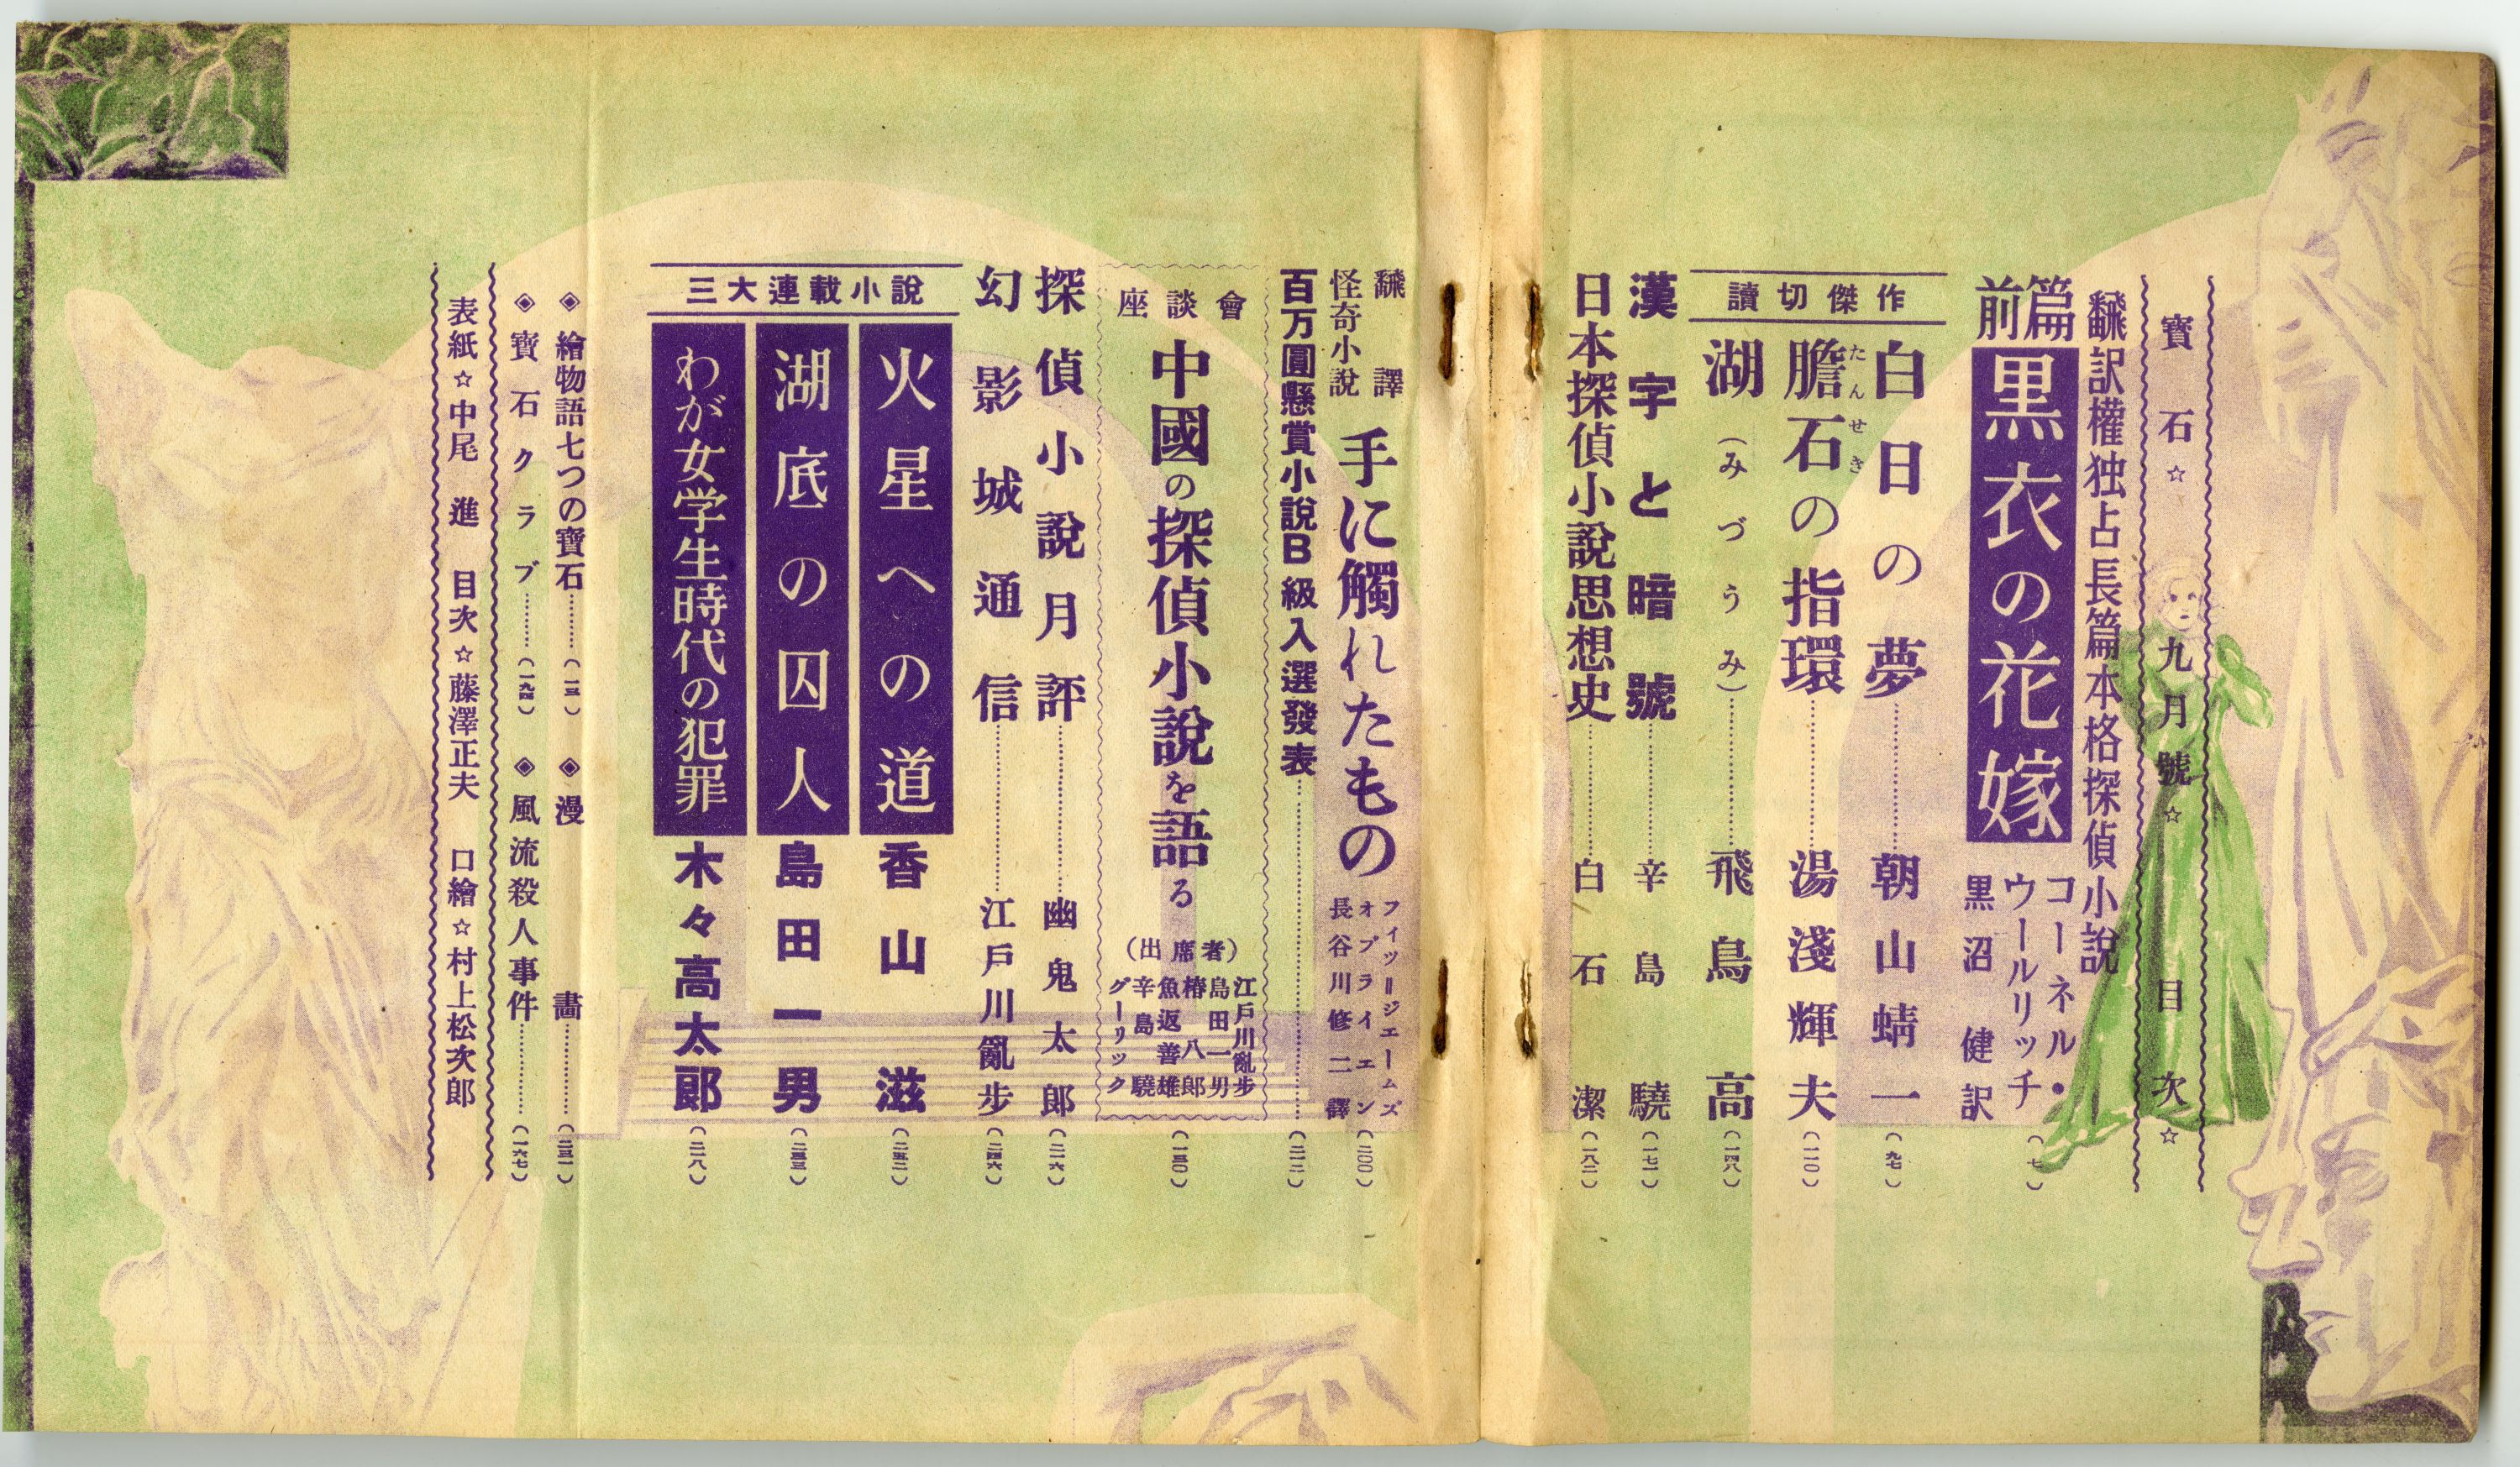 寶石☆九月號☆目次☆
飜訳權独占長篇本格探偵小說
前篇
黒衣の花嫁
コーネル・
ウールリッチ
黒沼健訳
(七)
讀切傑作
白日の夢………朝山蜻一(九七)
膽石の指環………湯淺輝夫(一一〇)
たんせき
湖(みづうみ)………飛鳥高(一四八)
漢字と暗號………辛島驍(一七一)
日本探偵小說思想史………白石潔(一八二)
飜譯
怪奇小說
手に觸れたもの
フィッツ=ジェームズ
オブライエン
長谷川修二譯
(二〇〇)
百万圓懸賞小說B級入選發表………(二一二)
座談會
中國の探偵小說を語る
(出席者)
江戶川亂步
島田一男
椿八郎
魚返善雄
辛島驍
グーリック
(一三〇)
探偵小說月評………幽鬼太郎(二一六)
幻影城通信………江戶川亂步(二四六)
三大連載小說
火星への道 香山滋(二五二)
湖底の囚人 島田一男(二三三)
わが女学生時代の犯罪 木々高太郎(二一八)
◈繪物語七つの寶石………(一三) ◈漫畵………(二三一)
◈寶石クラブ………(一九四) ◈風流殺人事件………(一六七)
表紙☆中尾進 目次☆藤澤正夫 口繪☆村上松次郎